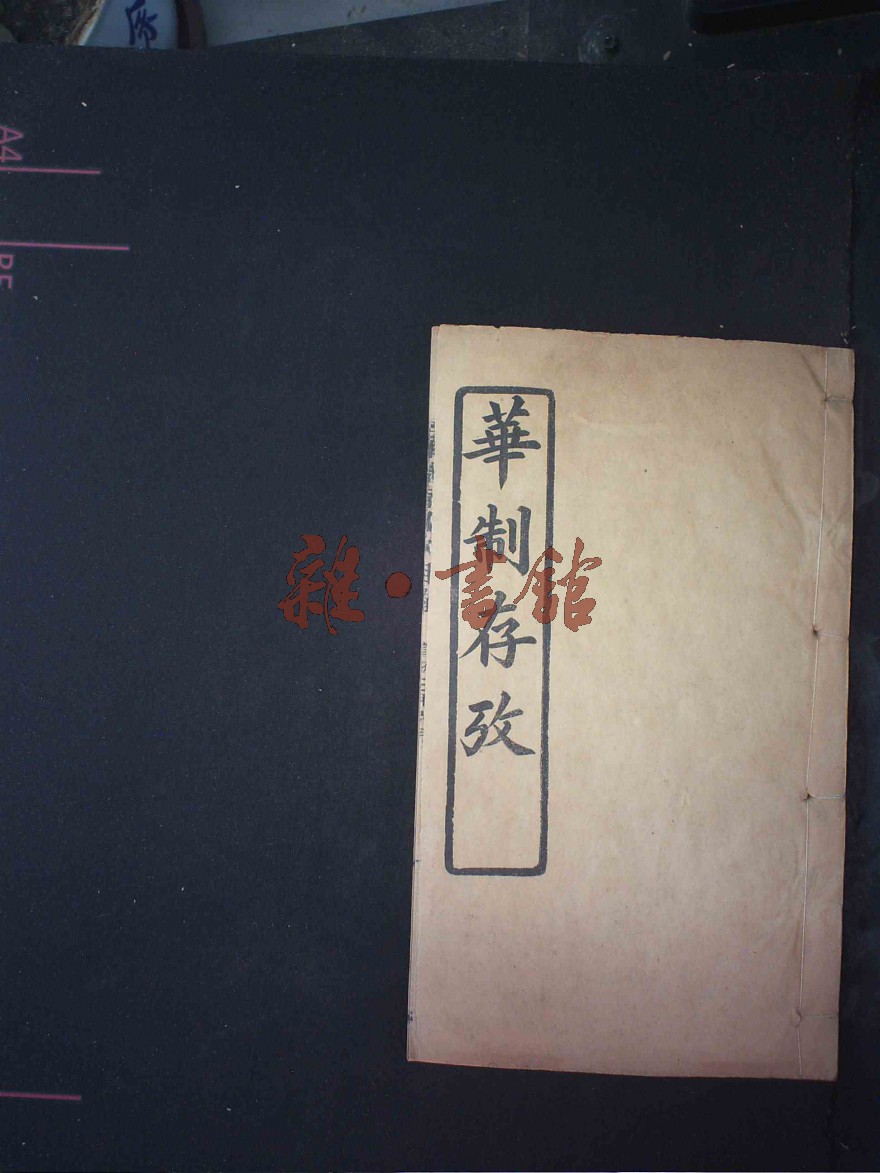 華制存攷
雜·書館
A4
B5